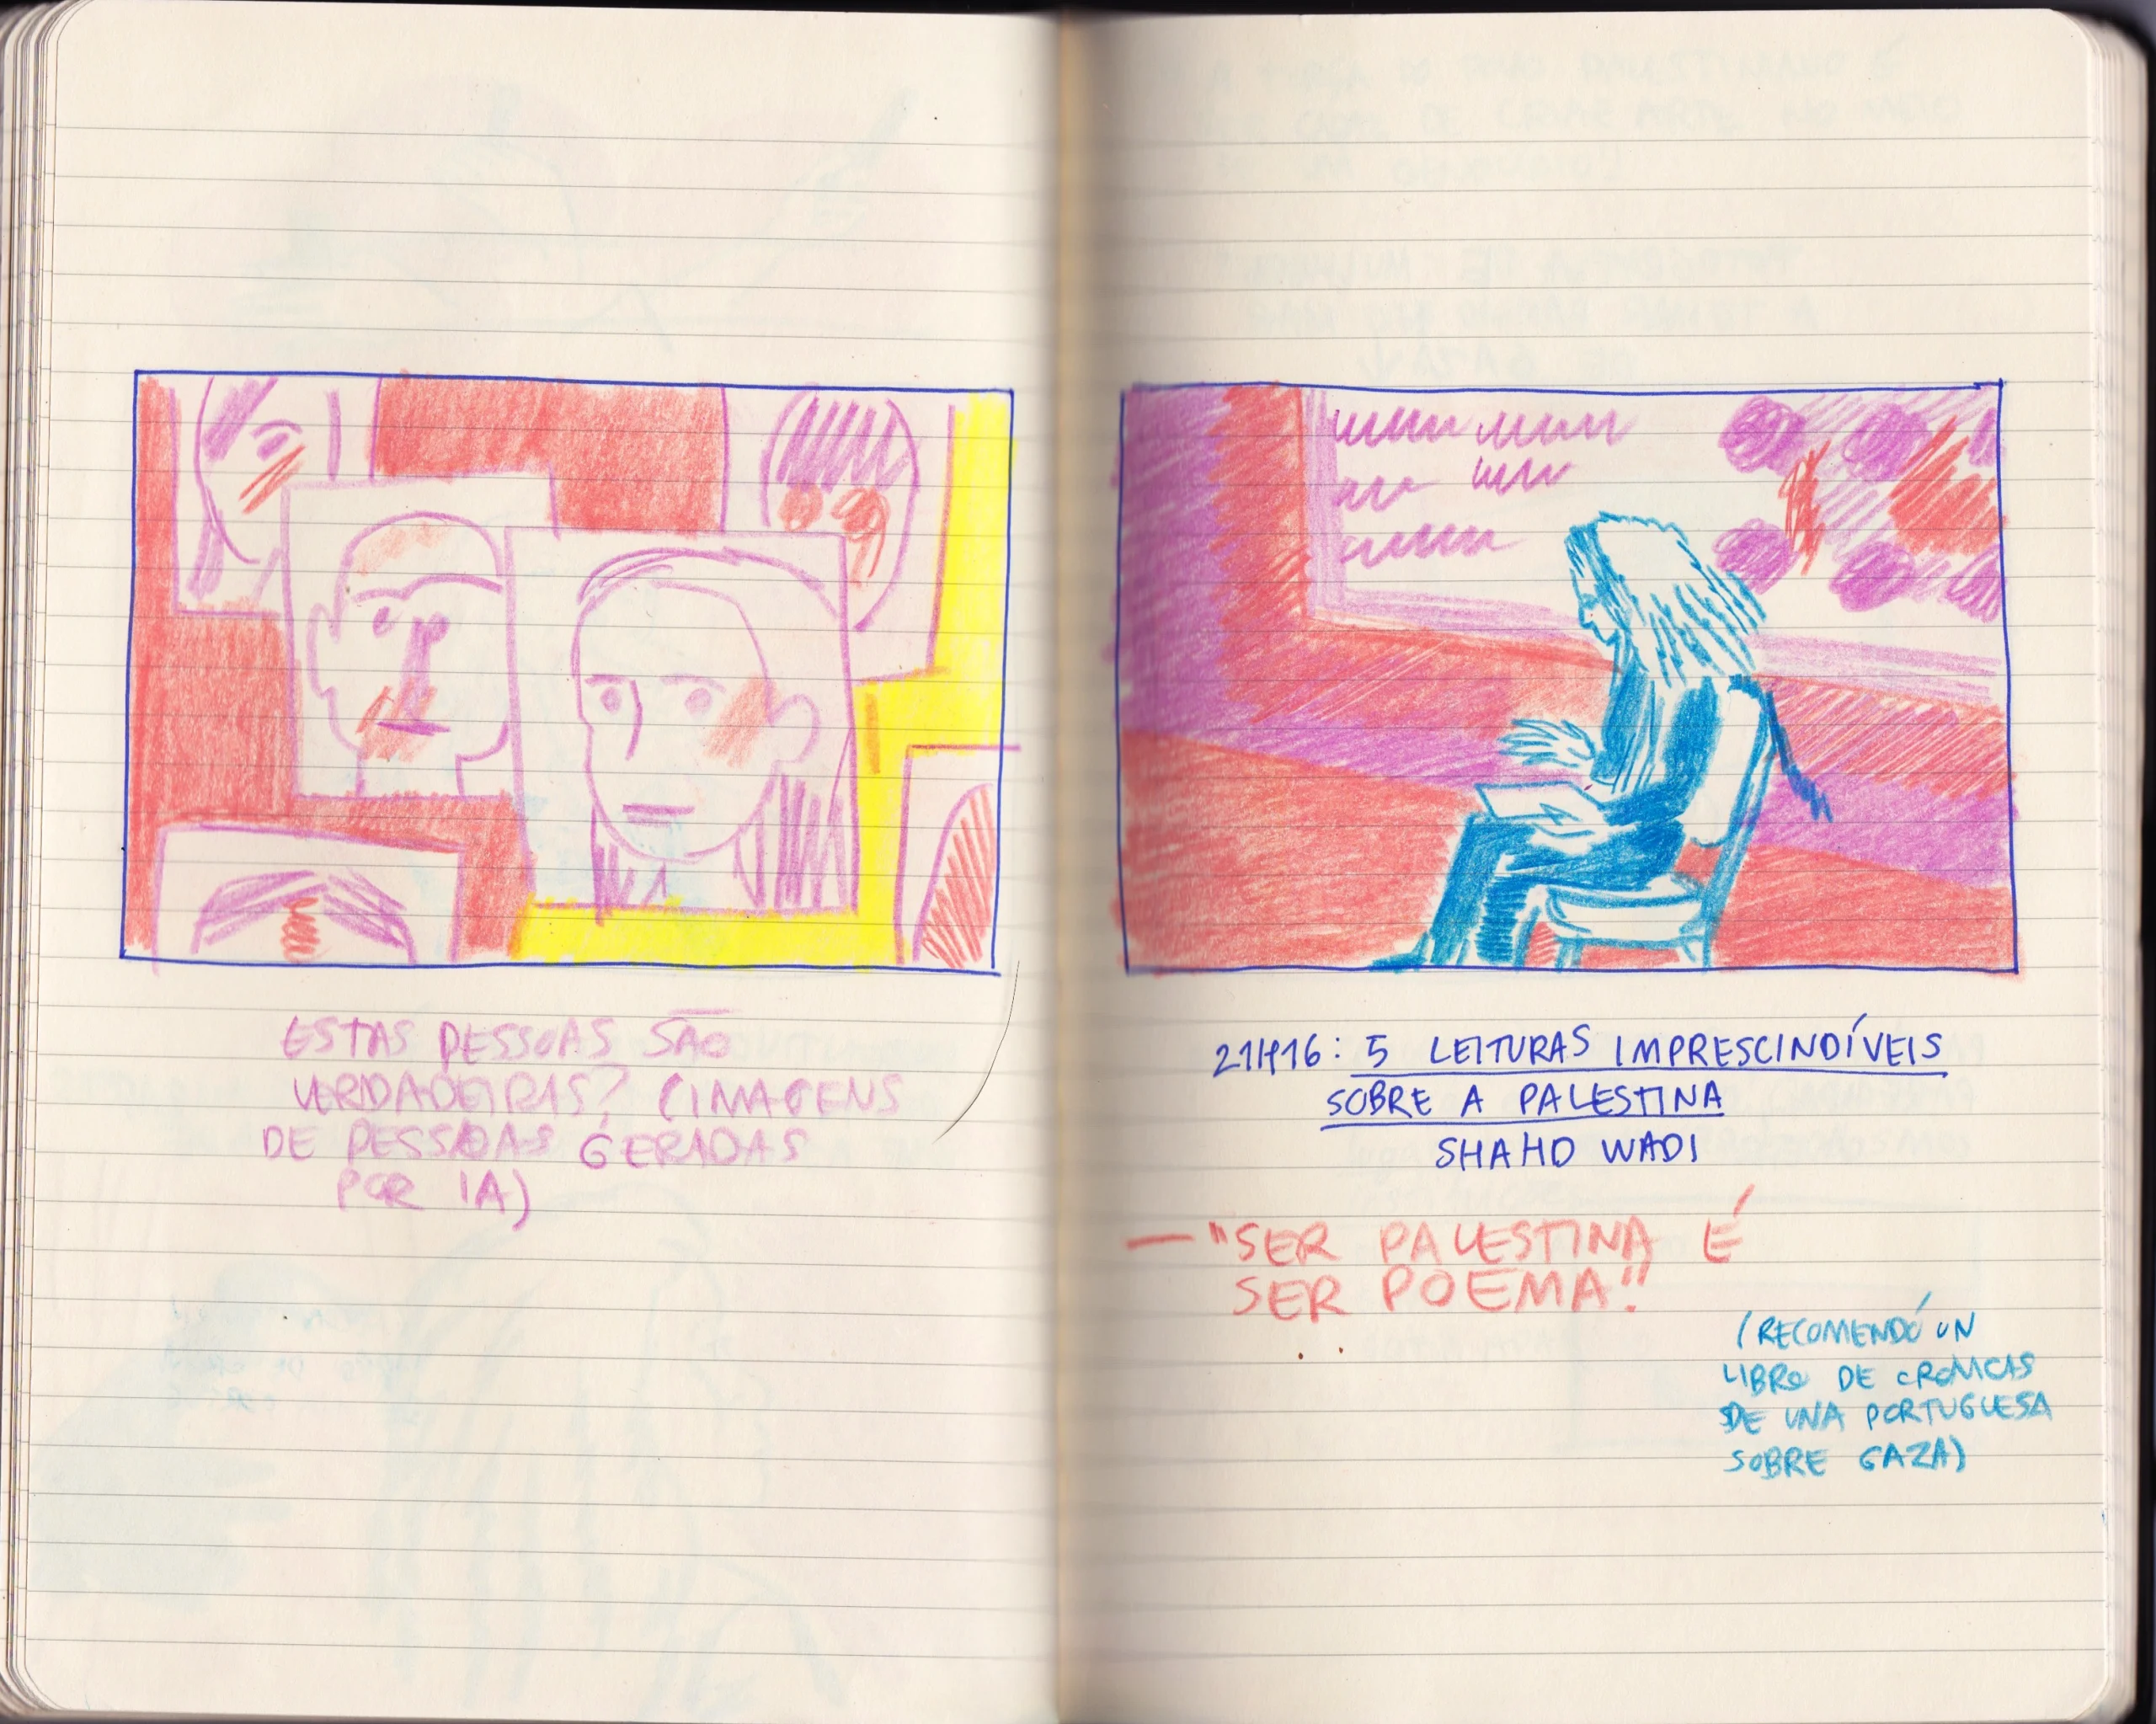 ESTAS PESSOAS SÃO
VERDADEIRAS? (IMAGENS
DE PESSOAS GERADAS
POR IA)
5 LEITURAS IMPRESCINDÍVEIS
SOBRE A PALESTINA
SHAHD WADI
— "SER PALESTINA É
SER POEMA"
(RECOMENDÓ UN
LIBRO DE CRONICAS
DE UNA PORTUGUESA
SOBRE GAZA)